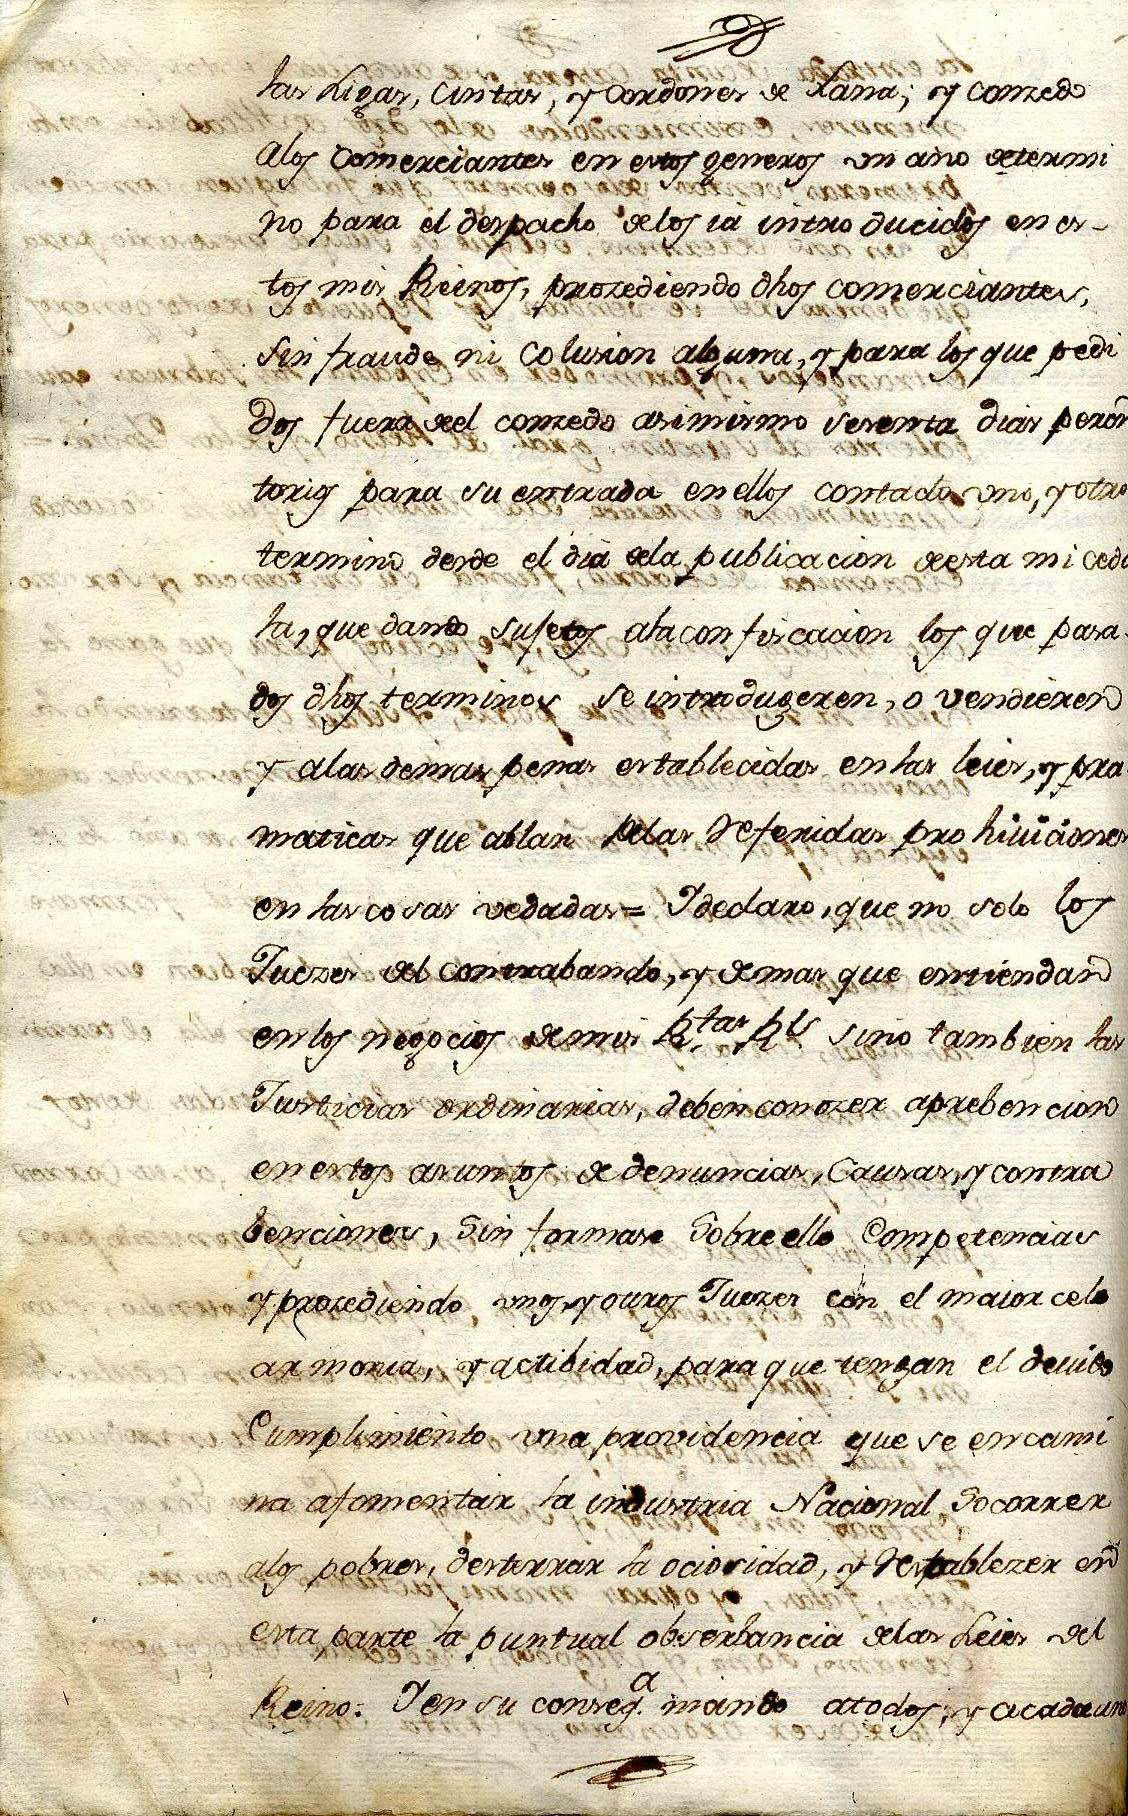 las Ligas, Cintas, y Cordones de Lana; y conzedo
alos comerciantes en estos generos un año determi
no para el despacho delos ia intro ducidos en es-
tos mis Reinos, prozediendo dhos comerciantes,
sin fraude ni Colusion alguna, y para los que pedi
dos fuera del conzedo asimismo sesenta dias peren
torios para su entrada en ellos contado uno, y otro
termino desde el dia dela publicacion de esta mi cedu
la, que dando sujetos ala confiscacion los que pasa-
dos dhos terminos se introdugeren, o vendieren
y alas demas penas establecidas en las leies, y pra
maticas que ablan delas referidas pro hiuiciones
en las cosas vedadas= I declaro, que no solo los
Juezes del contrabando, y demas que entiendan
en los negocios de mis R.tas R.ls sino tambien las
Justicias ordinarias, deben conozer aprebencion
en estos asuntos de denuncias, Causas, y contra
benciones, sin formase sobre ello Competencias
y prozediendo unos, y otros Juezes con el maior celo
armonia, y actibidad, para que tengan el deuido
Cumplimiento una providencia que se encami
na afomentar la industria Nacional Socorrer
alos pobres, desterrar la ociosidad, y restablezer en
esta parte la puntual obserbancia delas Leies del
Reino. I en su conseq.a mando atodos, y acada uno